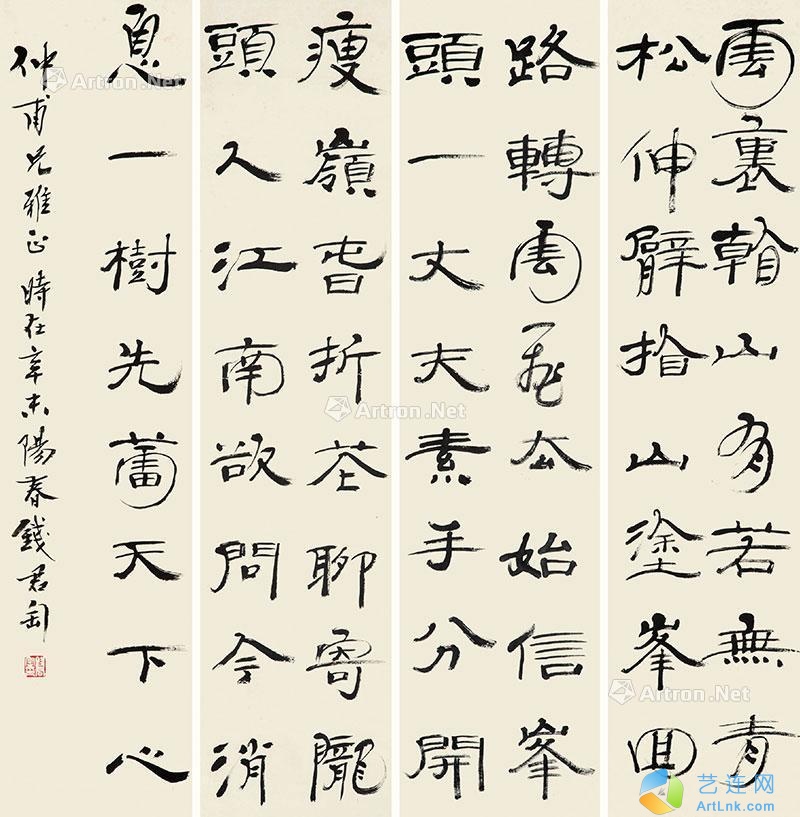 雲裏看山有若無青
松伸臂指山塗峯回
路轉雲飛去始信峯
頭一丈夫素手分開
庾嶺旾折花聊寄隴
頭人江南欲問今消
息一樹先蕾天下心
仲甫兄雅正時在辛未陽春錢君匋
Artron.Net
Artron.Net
Artron.Net
Artron.Net
Artron.Net
艺连网
ArtLnk.com